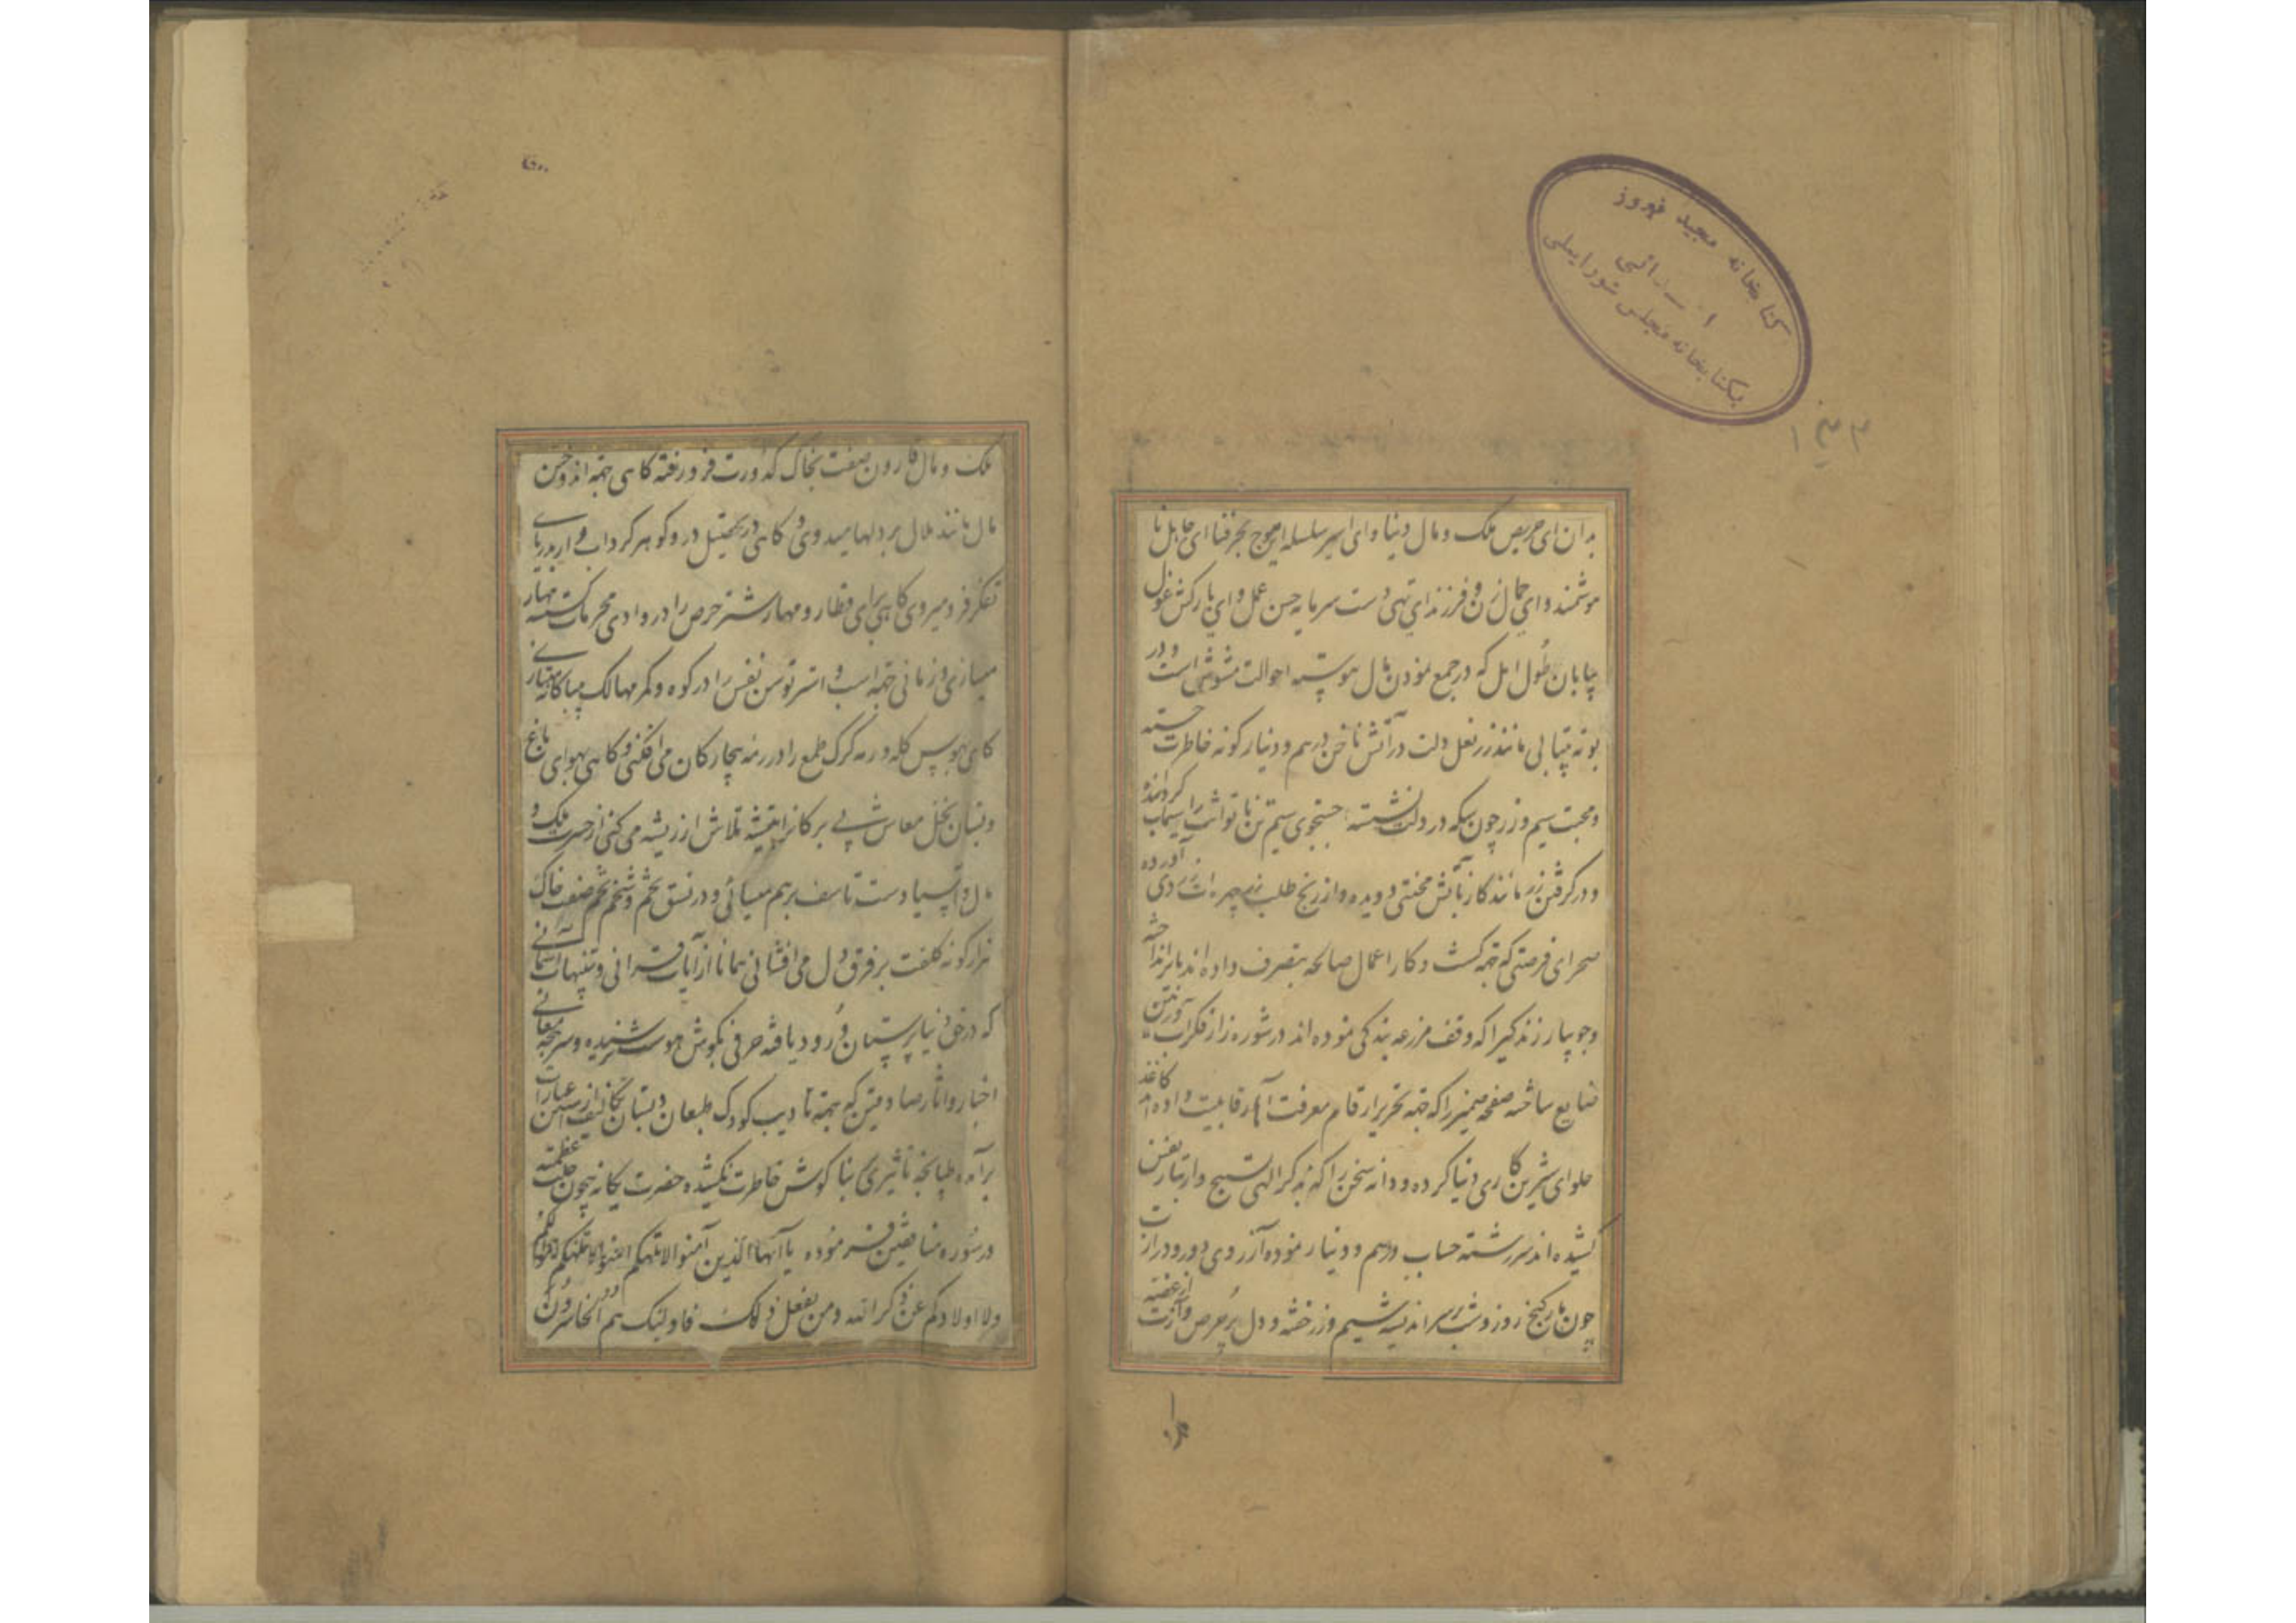 کتابخانه مجید فیروز
بکتابخانه مجلس شورایملی
بدان ای حریص ملک و مال دنیا و ای اسیر سلسله امواج بحر فنا ای جاهل نا
هوشمند و ای حمال زن و فرزند ای تهی دست سرمایه حسن عمل و ای بارکش غول
بیابان طول امل که در جمع نمودن مال پیوسته احوالت مشوش است و در
بوته بیتابی مانند زر نعل دلت در آتش ناخن درهم و دینار گونه خاطرت خسته
و محبت سیم و زر چون سکه در دلت نشسته جستجوی سیم تن ناتوانت را سیماب گردانیده
و در گرفتن زر مانند گاز بآتش محنتی دویده و از رنج طلب زر چهره ات زردی آورده
صحرای فرصتی که جهة کشت و کار اعمال صالحه بتصرف داده اند بایر انداخته
و جویبار زندگیرا که وقف مزرعه بندگی نموده اند در شوره زار فکر آب
ضایع ساخته صفحه ضمیر را که جهة تحریر ارقام معرفت قابلیت داده اند کاغذ
حلوای شیرین کاری دنیا کرده و دانه سخن را که بذکر الهی تسبیح وار بتار نفس
کشیده اند سررشته حساب درهم و دینار نموده آرزوی دور و درازت
چون مار گنج روز و شب بر سر اندیشه سیم و زر خفته و دل پر حرص و آزت از غصه
ملک و مال قارون صفت بخاک کدورت فرو رفته گاهی جهة اندوختن
مال مانند ملال بر دلها میدوی و گاهی در تحصیل در و گوهر گرداب وار بدریای
تفکر فرو میروی گاهی برای قطار و مهار شتر حرص را در وادی محرمات گسسته مهار
میسازی و زمانی جهة اسب و استر توسن نفس را در کوه و کمر مهالک بیباکانه
گاهی بهوس گله و رمه گرگ طمع را در رمه بیچارگان می افکنی و گاهی بهوای باغ
و بستان نخل معاش بی برگانرا بتیشه تلاش از ریشه می کنی از حسرت ملک و
مال و اسیا دست تاسف برهم میسائی و در نسق تخم و شخم تخم صفت خاک
هزار گونه کلفت بر فرق دل می افشانی همانا از آیات قرانی و تنبیهات آسمانی
که در حق دنیا پرستان ورود یافته حرفی بگوش هوست نرسیده و سرپنجه معانی
اخبار و اثار صادقین که جهة تادیب کودک طبعان دبستان تکلیف از آستین عبارات
برآمده طپانچه تاثیری بنا گوش خاطرت نکشیده حضرت یگانه بیچون جلت عظمته
در سوره منافقین فرموده یا ایها الذین آمنوا لا تلهکم اموالکم
ولا اولادکم عن ذکر الله ومن یفعل ذلک فاولئک هم الخاسرون